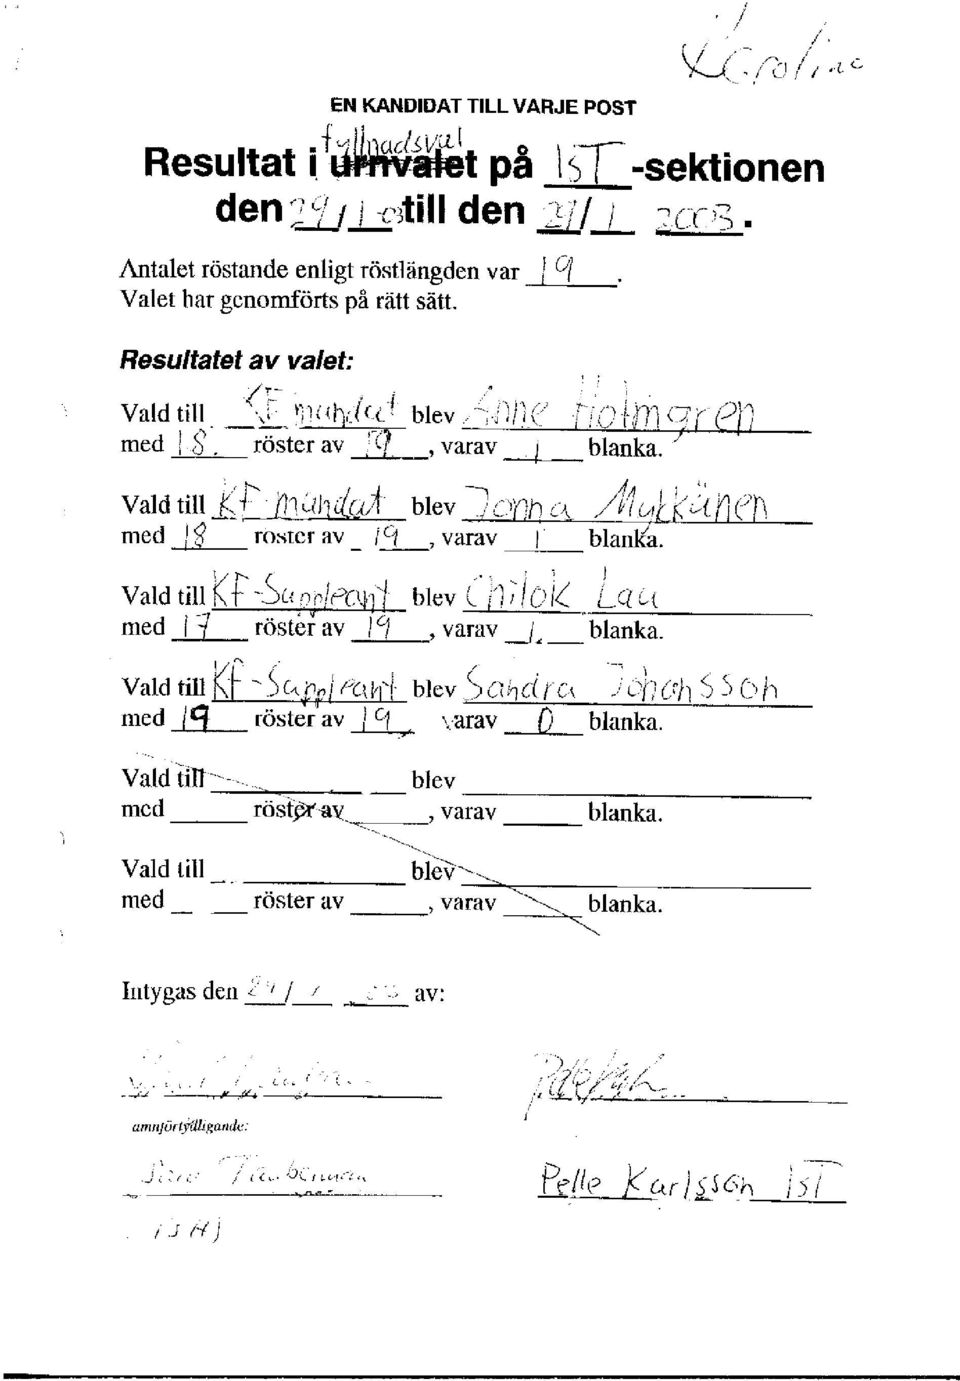 Karoline
EN KANDIDAT TILL VARJE POST
fyllnadsval
Resultat i urnvalet på IST -sektionen
den 29/1 -03 till den 29/1 2003.
Antalet röstande enligt röstlängden var 19.
Valet har genomförts på rätt sätt.
Resultatet av valet:
Vald till KF mandat blev Anne Holmgren
med 18. röster av 19, varav 1 blanka.
Vald till KF-mandat blev Jonna Mykkänen
med 18 röster av 19, varav 1 blanka.
Vald till KF-Suppleant blev Chilok Lau
med 17 röster av 19, varav 1. blanka.
Vald till KF-Suppleant blev Sandra Johansson
med 19 röster av 19, varav 0 blanka.
Vald till blev
med röster av , varav blanka.
Vald till blev
med röster av , varav blanka.
Intygas den 29/1 03 av:
namnförtydligande:
Pelle Karlsson IST